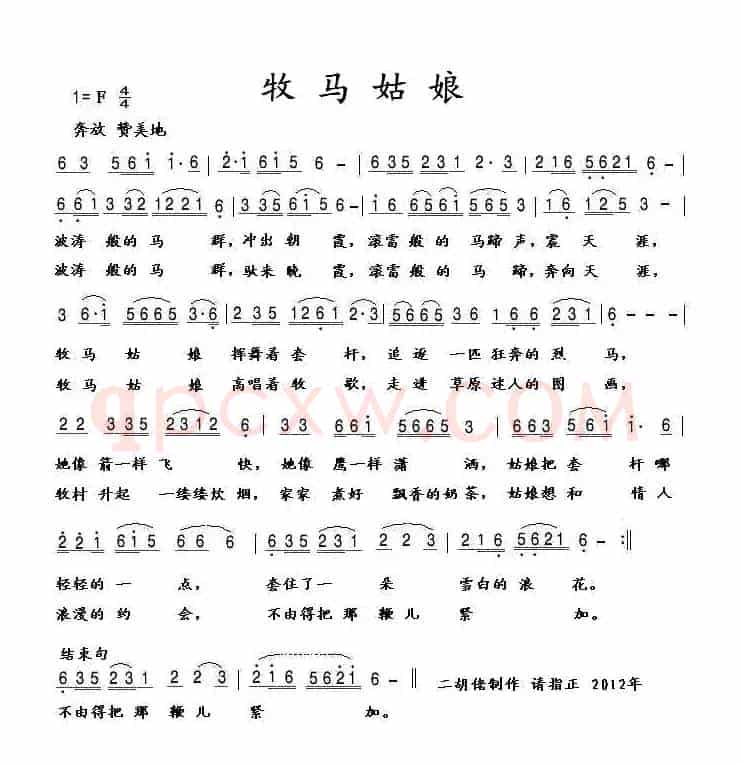 牧马姑娘
1=F 4/4
奔放 赞美地
6 3 5 6 i i·6 | 2·i 6 i 5 6 - | 6 3 5 2 3 1 2 2 3 | 2 1 6 5 6 2 1 6 - |
6 6 i 3 3 2 1 2 2 1 6 | 3 3 5 6 i 5 6 - | i 6 6 5 6 i 5 6 5 3 | 1 6 1 2 5 3 - |
波涛 般的 马 群,冲出 朝 霞,滚雷 般的 马蹄 声,震 天 涯,
波涛 般的 马 群,驮来 晚 霞,滚雷 般 的 马 蹄,奔向 天 涯,
3 6·i 5 6 6 5 3·6 | 2 3 5 1 2 6 1 2· 2 | 5 6 6 5 3 6 1 6 6 2 3 1 6 - |
牧 马 姑 娘 挥舞着 套 杆, 追 逐 一匹 狂奔的 烈 马,
牧 马 姑 娘 高唱着 牧 歌, 走 进 草原 迷人的 图 画,
2 2 3 3 5 2 3 1 2 6 | 3 3 6 6 i 5 6 6 5 3 | 6 6 3 5 5 6 i i·6 |
她像 箭一样 飞 快,她像 鹰一样 潇 洒, 姑娘把 套 杆 哪
牧村 升起 一缕缕炊 烟,家家 煮好 飘香的奶茶, 姑娘想 和 情人
2 2 i 6 i 5 6 6 6 | 6 3 5 2 3 1 2 2 3 | 2 1 6 5 6 2 1 6 - :‖
轻轻的 一 点, 套住了 一 朵 雪白的 浪 花。
浪漫的 约 会, 不由得把 那 鞭儿 紧 加。
结束句
6 3 5 2 3 1 2 2 3 | 2 i 6 5 6 2 i 6 - ‖ 二胡佬制作 请指正 2012年
不由得把 那 鞭儿 紧 加。
qpcxw.COM